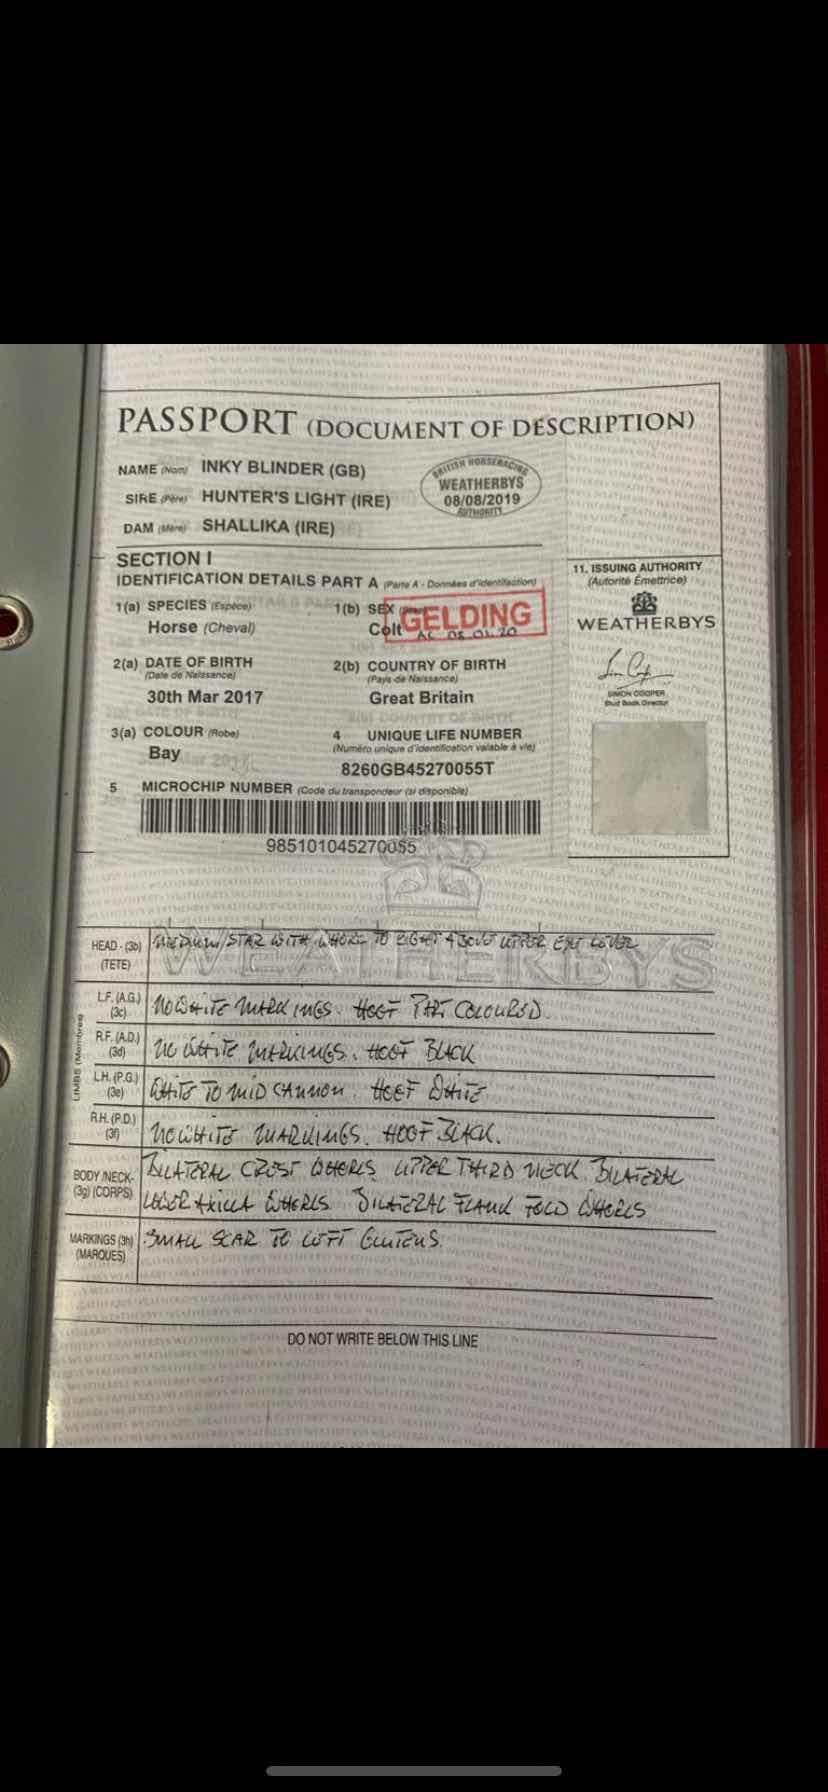 PASSPORT (DOCUMENT OF DESCRIPTION)
NAME (Nom) INKY BLINDER (GB)
SIRE (Père) HUNTER'S LIGHT (IRE)
DAM (Mère) SHALLIKA (IRE)
BRITISH HORSERACING
WEATHERBYS
08/08/2019
AUTHORITY
SECTION I
IDENTIFICATION DETAILS PART A (Partie A - Données d'identifaction)
1(a) SPECIES (Espèce)
Horse (Cheval)
1(b) SEX
Colt
GELDING
AC 08.01.20
2(a) DATE OF BIRTH
(Date de Naissance)
30th Mar 2017
2(b) COUNTRY OF BIRTH
(Pays de Naissance)
Great Britain
3(a) COLOUR (Robe)
Bay
4 UNIQUE LIFE NUMBER
(Numéro unique d'identification valable à vie)
8260GB45270055T
5 MICROCHIP NUMBER (Code du transpondeur (si disponible)
985101045270055
11. ISSUING AUTHORITY
(Autorité Émettrice)
WEATHERBYS
SIMON COOPER
Stud Book Director
WEATHERBYS
HEAD - (3b)
(TETE)
MEDIUM STAR WITH WHORL TO RIGHT ABOVE UPPER EYE LEVEL
LIMBS (Membres)
L.F. (A.G.)
(3c)
NO WHITE MARKINGS. HOOF PART COLOURED.
R.F. (A.D.)
(3d)
NO WHITE MARKINGS. HOOF BLACK
L.H. (P.G.)
(3e)
WHITE TO MID CANNON. HOOF WHITE
R.H. (P.D.)
(3f)
NO WHITE MARKINGS. HOOF BLACK.
BODY /NECK-
(3g) (CORPS)
BILATERAL CREST WHORLS UPPER THIRD NECK. BILATERAL
LOWER AXILLA WHORLS. BILATERAL FLANK FOLD WHORLS
MARKINGS (3h)
(MARQUES)
SMALL SCAR TO LEFT GLUTEUS.
DO NOT WRITE BELOW THIS LINE